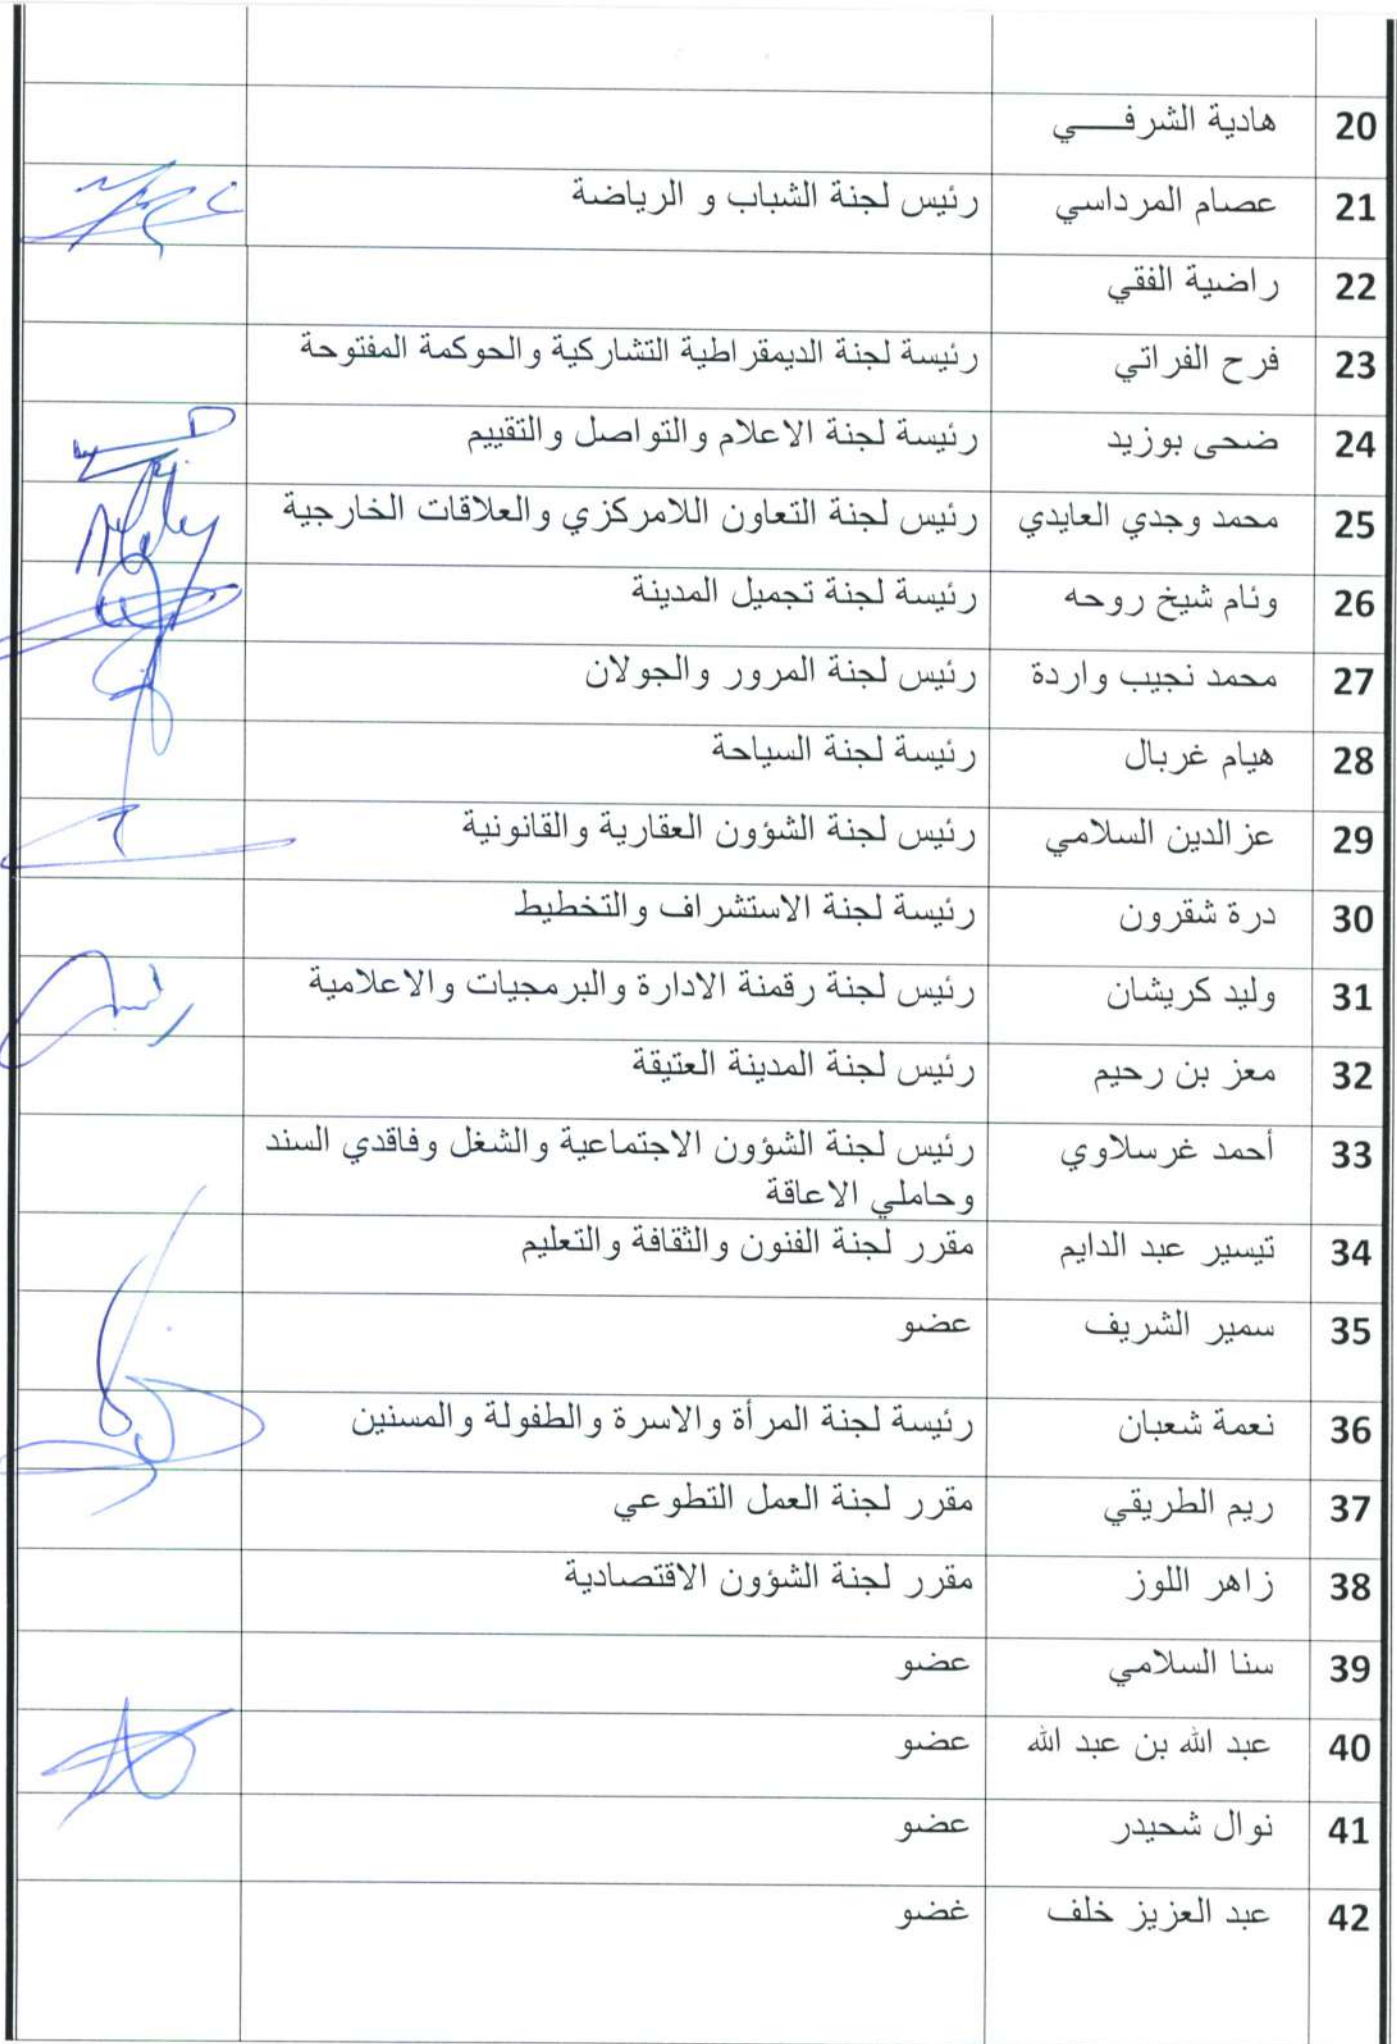 20 هادية الشرفـــي
21 عصام المرداسي رئيس لجنة الشباب و الرياضة
22 راضية الفقي
23 فرح الفراتي رئيسة لجنة الديمقراطية التشاركية والحوكمة المفتوحة
24 ضحى بوزيد رئيسة لجنة الاعلام والتواصل والتقييم
25 محمد وجدي العايدي رئيس لجنة التعاون اللامركزي والعلاقات الخارجية
26 وئام شيخ روحه رئيسة لجنة تجميل المدينة
27 محمد نجيب واردة رئيس لجنة المرور والجولان
28 هيام غربال رئيسة لجنة السياحة
29 عزالدين السلامي رئيس لجنة الشؤون العقارية والقانونية
30 درة شقرون رئيسة لجنة الاستشراف والتخطيط
31 وليد كريشان رئيس لجنة رقمنة الادارة والبرمجيات والاعلامية
32 معز بن رحيم رئيس لجنة المدينة العتيقة
33 أحمد غرسلاوي رئيس لجنة الشؤون الاجتماعية والشغل وفاقدي السند
وحاملي الاعاقة
34 تيسير عبد الدايم مقرر لجنة الفنون والثقافة والتعليم
35 سمير الشريف عضو
36 نعمة شعبان رئيسة لجنة المرأة والاسرة والطفولة والمسنين
37 ريم الطريقي مقرر لجنة العمل التطوعي
38 زاهر اللوز مقرر لجنة الشؤون الاقتصادية
39 سنا السلامي عضو
40 عبد الله بن عبد الله عضو
41 نوال شحيدر عضو
42 عبد العزيز خلف غضو